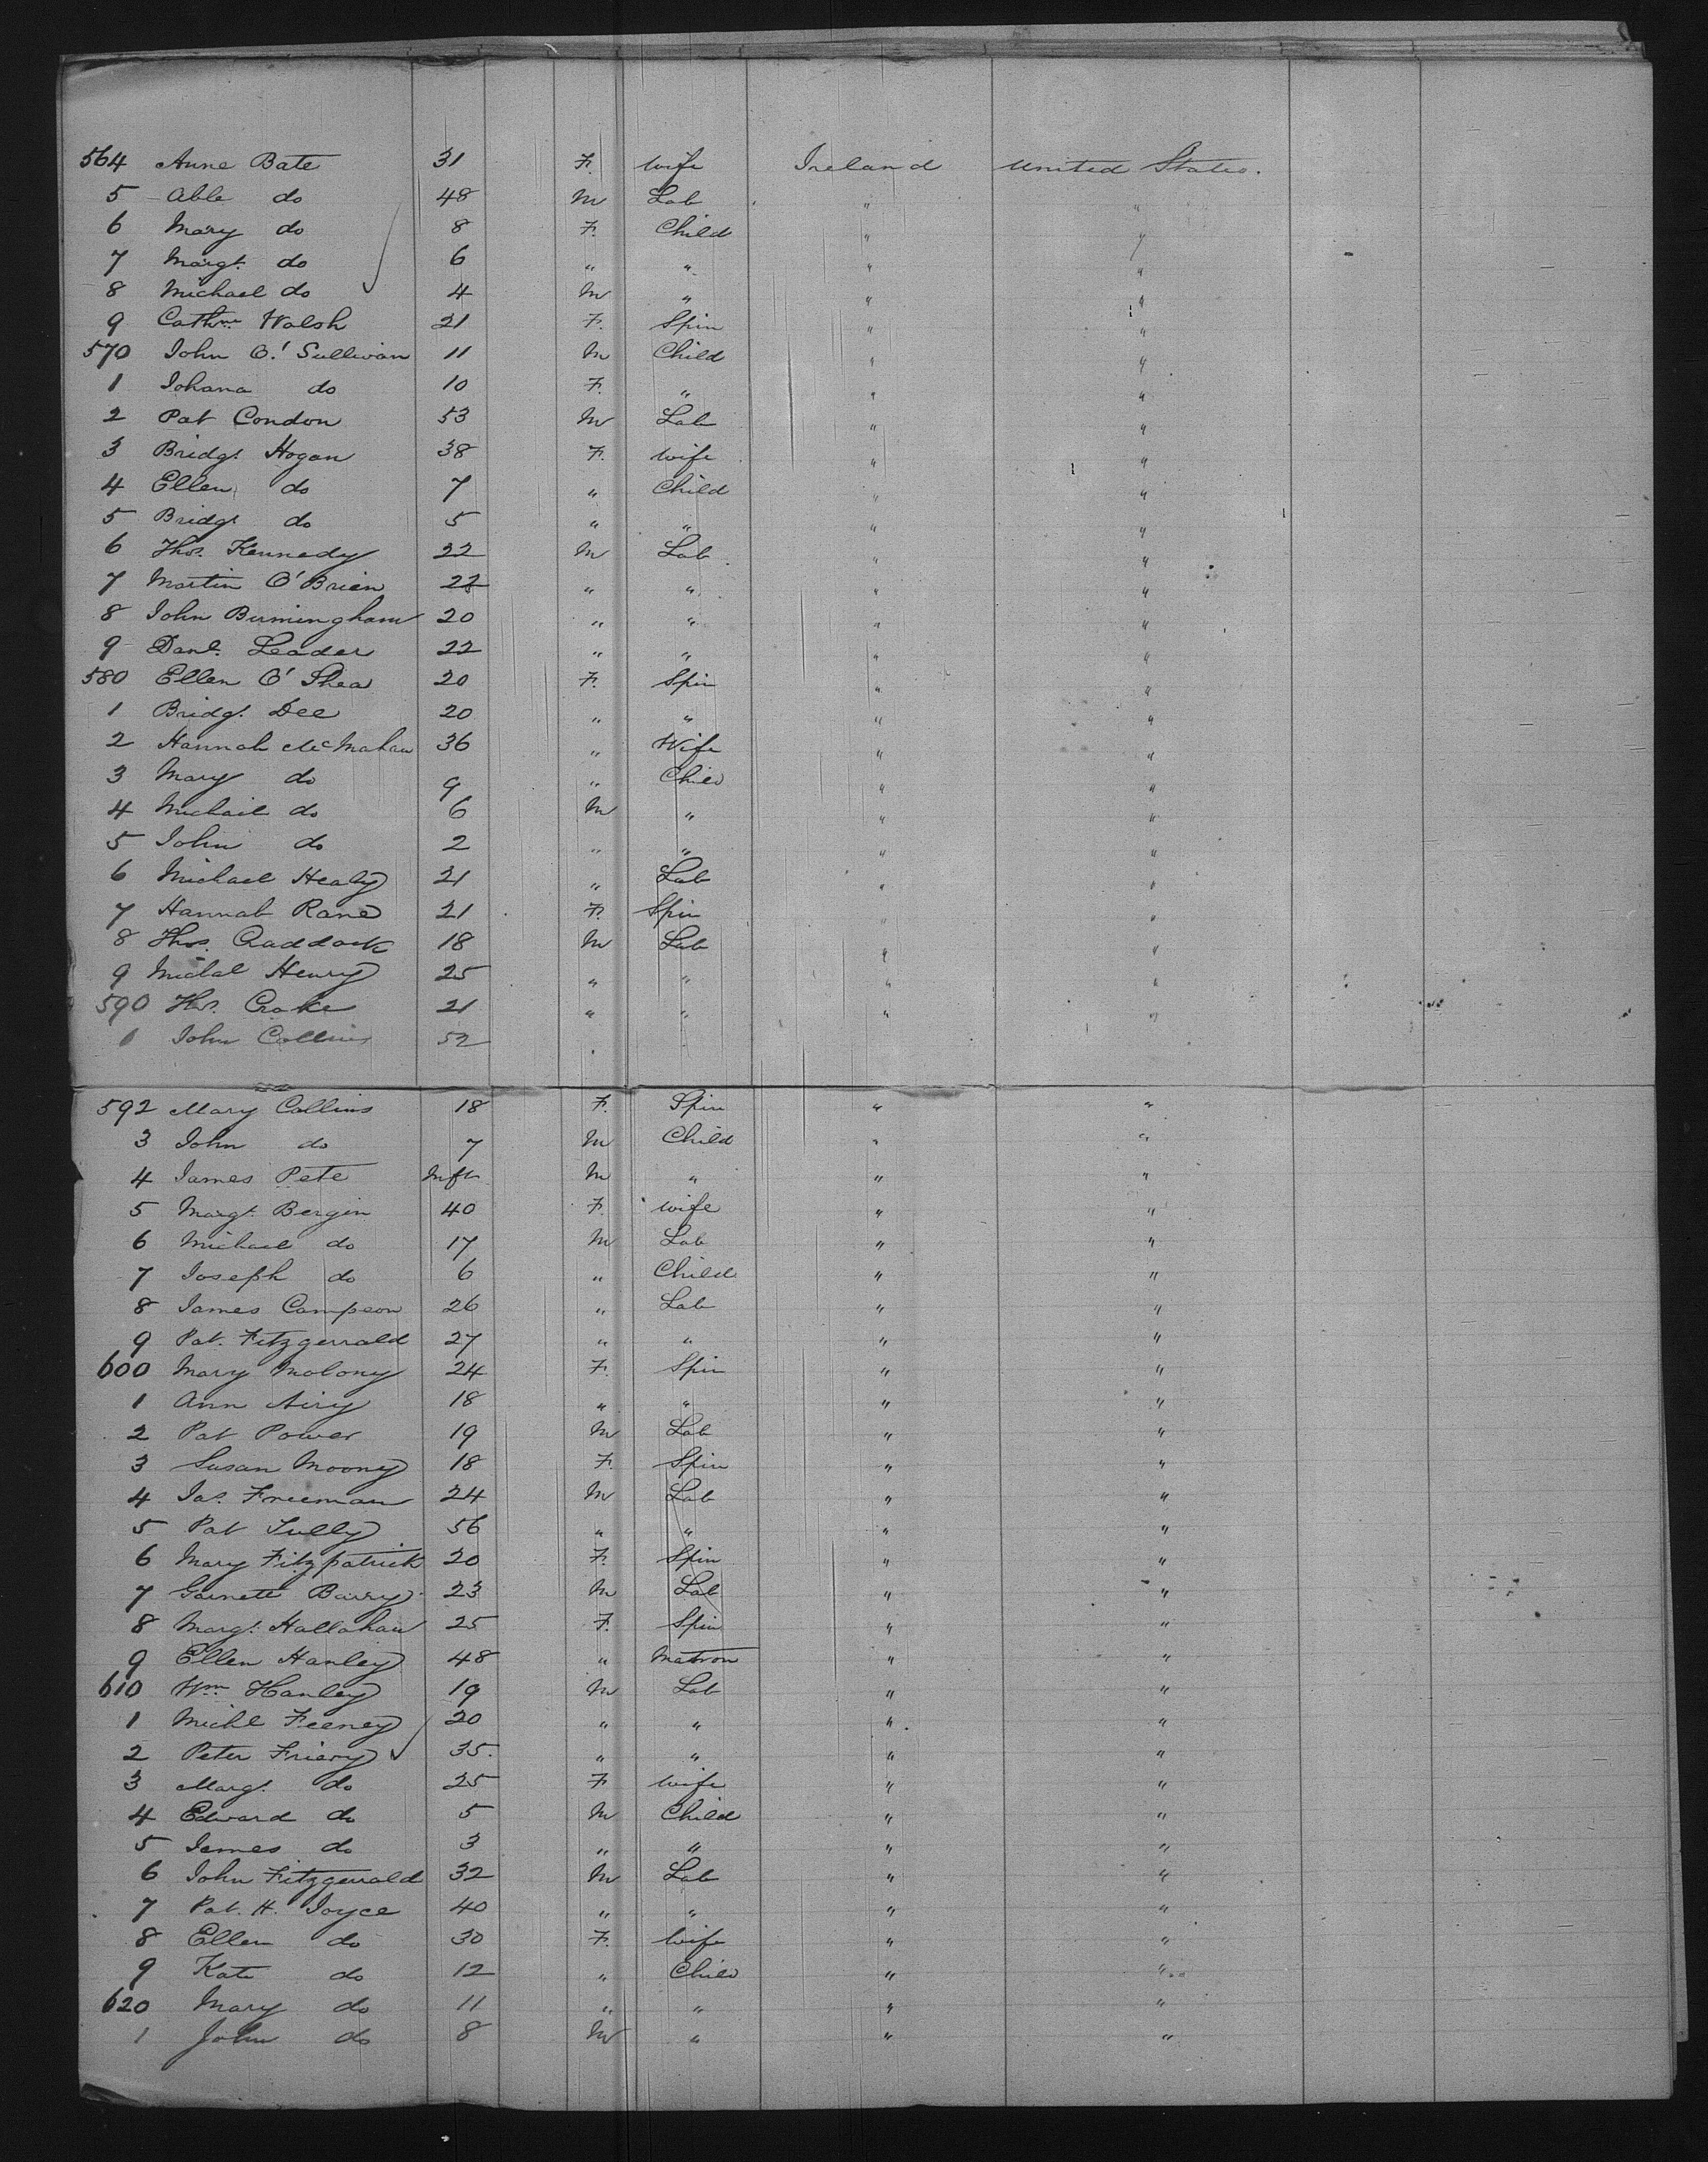 564 Anne Bate 31 F. wife Ireland United States.
5 Able do 48 M Lab " "
6 Mary do 8 F. Child " "
7 Margt. do 6 " " " "
8 Michael do 4 M " " "
9 Cathne Walsh 21 F. Spin " "
570 John O'Sullivan 11 M Child " "
1 Johana do 10 F. " " "
2 Pat Condon 53 M Lab " "
3 Bridgt. Hogan 38 F. wife " "
4 Ellen do 7 " Child " "
5 Bridgt do 5 " " " "
6 Thos. Kennedy 22 M Lab " "
7 Martin O'Brien 22 " " " "
8 John Burmingham 20 " " " "
9 Danl. Leader 22 " " " "
580 Ellen O'Shea 20 F. Spin " "
1 Bridgt. Dee 20 " " " "
2 Hannah McMahan 36 " Wife " "
3 Mary do 9 " Child " "
4 Michail do 6 M " " "
5 John do 2 " " " "
6 Michael Healy 21 " Lab " "
7 Hannah Rane 21 F. Spin " "
8 Thos. Craddock 18 M Lab " "
9 Michal Henry 25 " " " "
590 Ths. Crake 21 " " " "
1 John Collins 52
592 Mary Collins 18 F. Spin " "
3 John do 7 M Child " "
4 James Pete Inft M " " "
5 Margt. Bergin 40 F. wife " "
6 Michael do 17 M Lab " "
7 Joseph do 6 " Child " "
8 James Campeon 26 " Lab " "
9 Pat. Fitzgerrald 27 " " " "
600 Mary Molony 24 F. Spin " "
1 Ann Airy 18 " " " "
2 Pat Power 19 M Lab " "
3 Susan Moony 18 F. Spin " "
4 Jas. Freeman 24 M Lab " "
5 Pat Tully 56 " " " "
6 Mary Fitzpatrick 20 F. Spin " "
7 Garnett Barry 23 M Lab " "
8 Margt. Hallahan 25 F. Spin " "
9 Ellen Hanley 48 " Matron " "
610 Wm Hanley 19 M Lab " "
1 Michl Feeney 20 " " " "
2 Peter Friery 35. " " " "
3 Margt. do 25 F wife " "
4 Edward do 5 M Child " "
5 James do 3 " " " "
6 John Fitzgerrald 32 M Lab " "
7 Pat. H. Joyce 40 " " " "
8 Ellen do 30 F. wife " "
9 Kate do 12 " Child " "
620 Mary do 11 " " " "
1 John do 8 M " " "